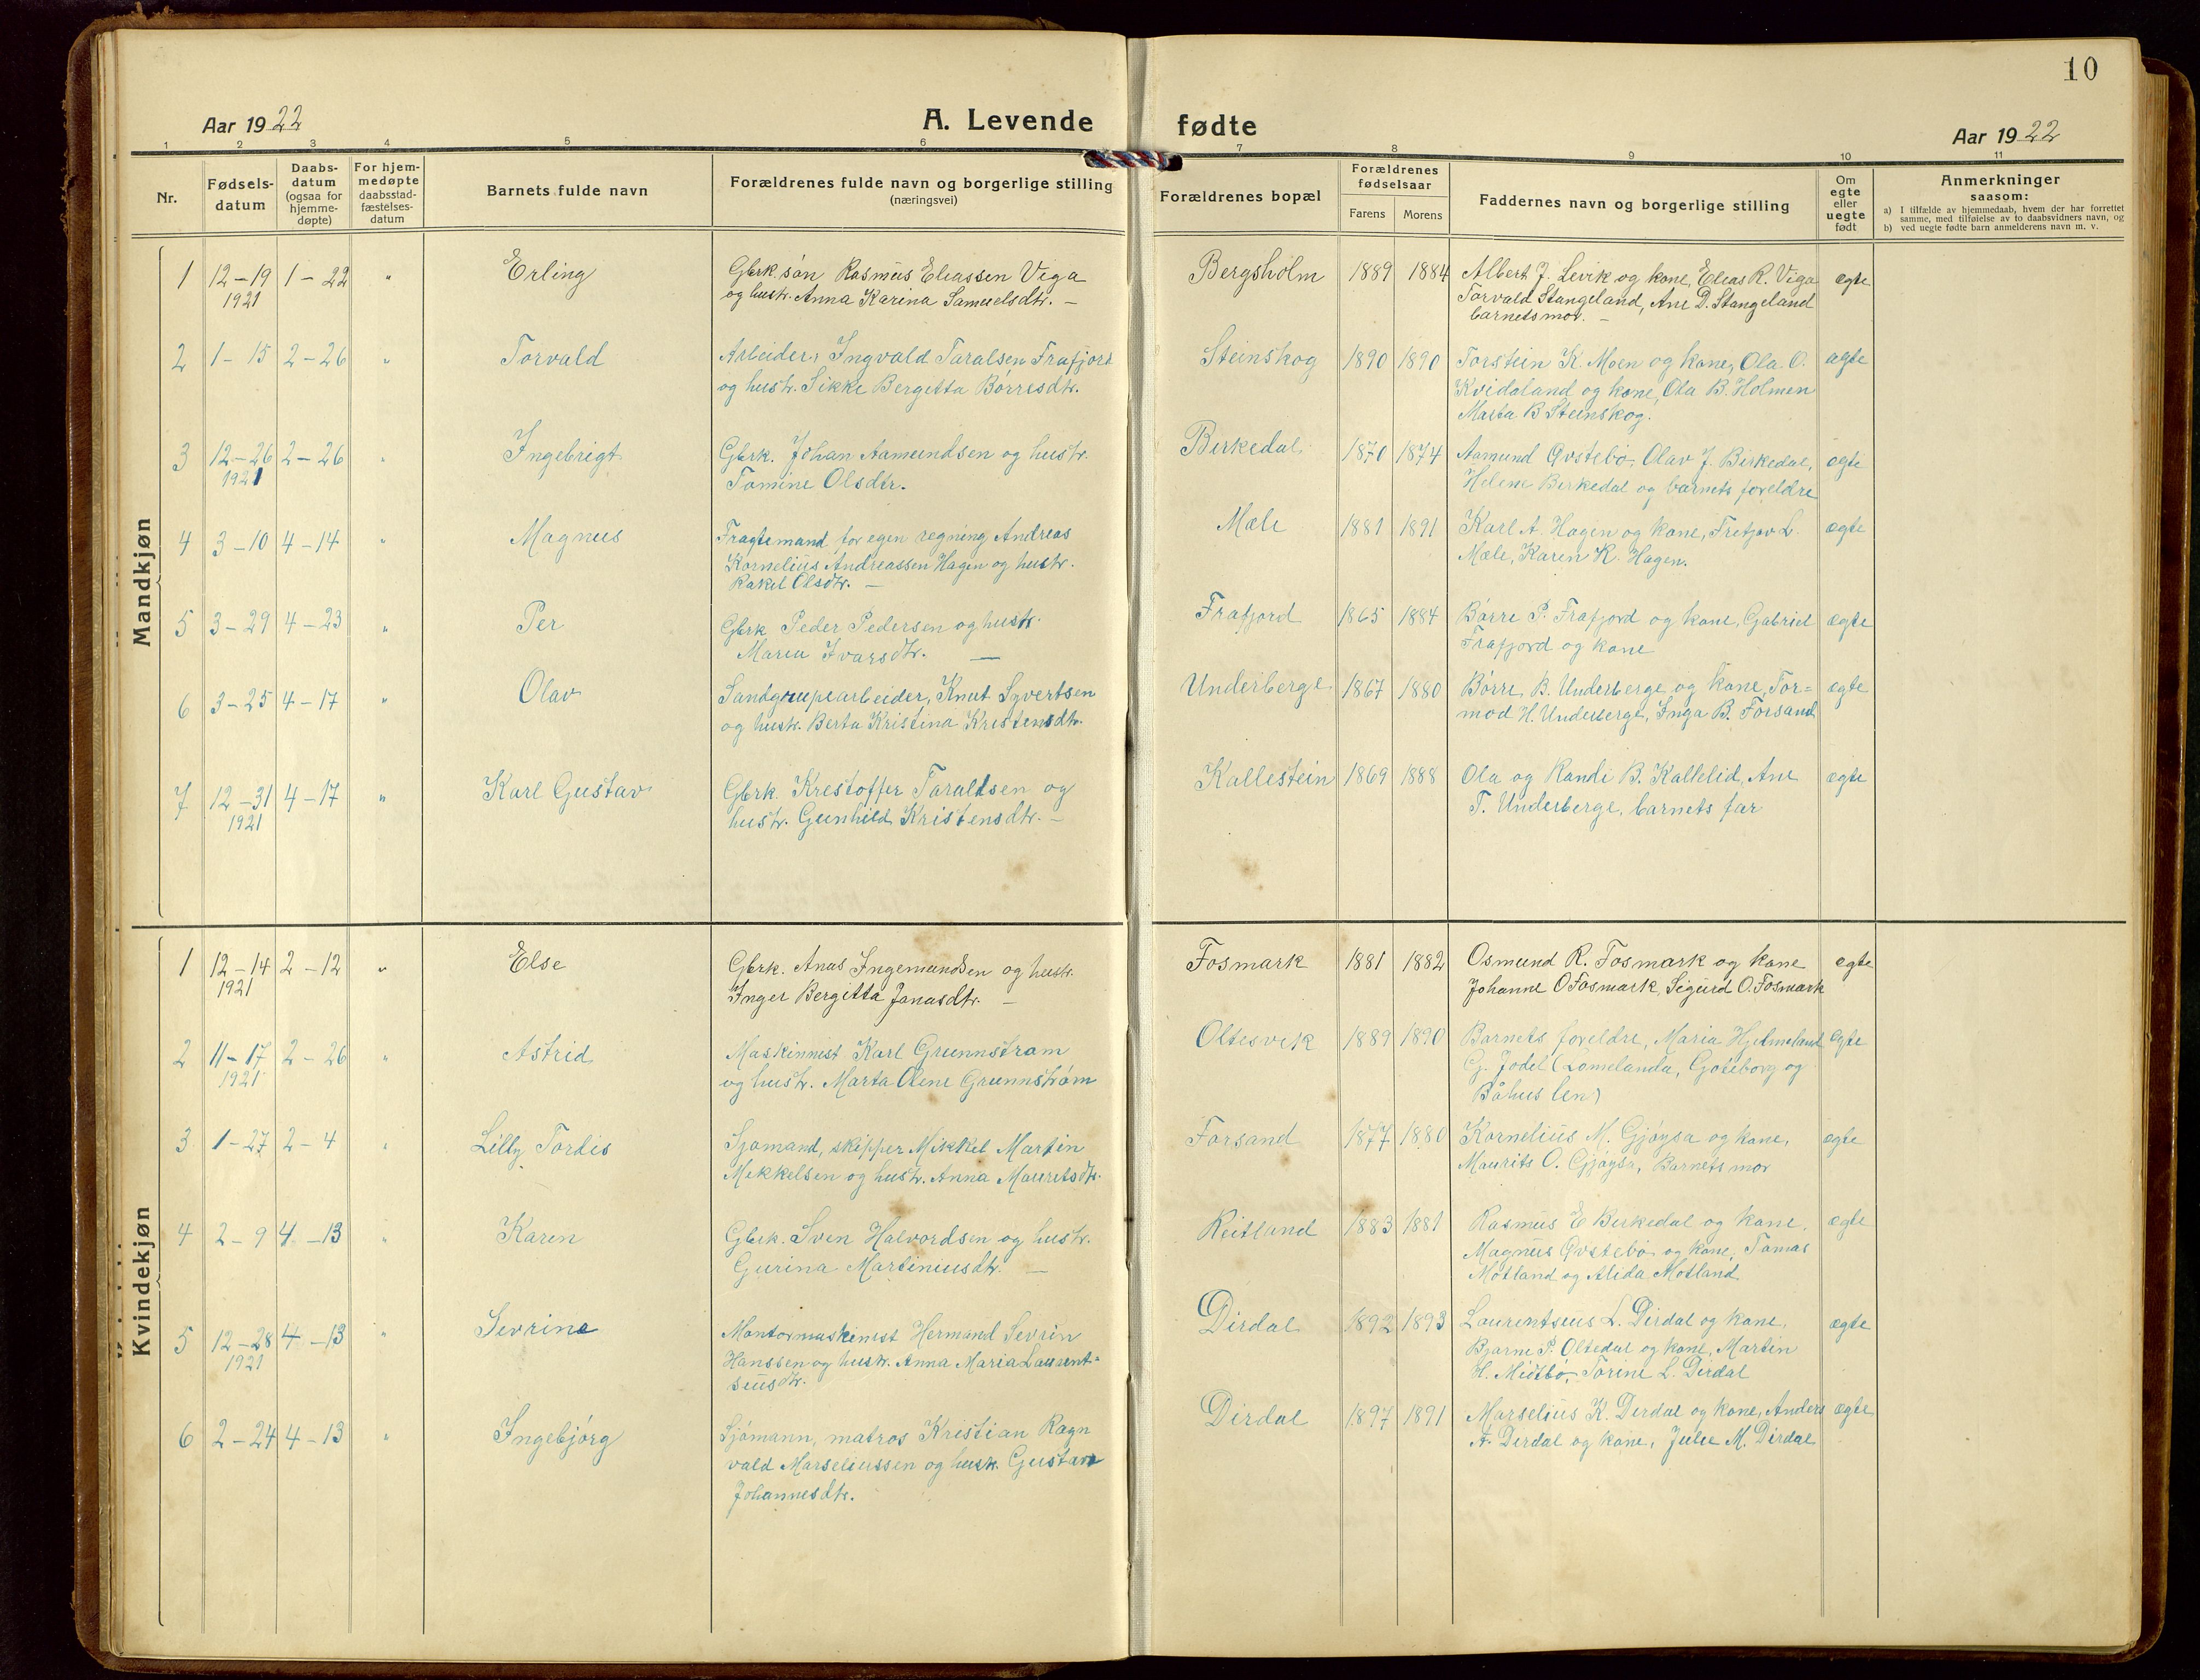 10
Aar 1922
A. Levende fødte
Aar 1922
1 2 3 4 5 6 7 8 9 10 11
Nr.
Fødsels-
datum
Daabs-
datum
(ogsaa for
hjemme-
døpte)
For hjem-
medøpte
daabsstad-
fæstelses-
datum
Barnets fulde navn
Forældrenes fulde navn og borgerlige stilling
(næringsvei)
Forældrenes bopæl
Forældrenes
fødselsaar
Farens Morens
Faddernes navn og borgerlige stilling
Om
egte
eller
uegte
født
Anmerkninger
saasom:
a) I tilfælde av hjemmedaab, hvem der har forrettet
samme, med tilføielse av to daabsvidners navn, og
b) ved uegte fødte barn anmelderens navn m. v.
Mandkjøn
1 12-19 1921 1-22 " Erling
Gbrk. søn Rasmus Eliassen Viga
og hustr. Anna Karina Samuelsdtr. —
Bergsholm 1889 1884
Albert J. Levik og kone, Elias R. Viga
Torvald Stangeland, Ane D. Stangeland
barnets mor. —
egte
2 1-15 2-26 " Torvald
Arbeider, Ingvald Taralsen Frafjord
og hustr. Sikke Bergitta Børresdtr.
Steinskog 1890 1890
Torstein K. Moen og kone, Ola O.
Kvidaland og kone, Ola B. Holmen
Marta B Steinskog.
egte
3 12-26 1921 2-26 " Ingebrigt
Gbrk. Johan Aamundsen og hustr.
Tomine Olsdtr.
Birkedal 1870 1874
Aamund Øvstebø, Olav J. Birkedal,
Helene Birkedal og barnets foreldre
egte
4 3-10 4-14 " Magnus
Fragtemand for egen regning Andreas
Kornelius Andreassen Hagen og hustr.
Rakel Olsdtr. —
Mæle 1881 1891
Karl A. Hagen og kone, Fretjov L.
Mæle, Karen K. Hagen.
egte
5 3-29 4-23 " Per
Gbrk Peder Pedersen og hustr.
Maria Ivarsdtr. —
Frafjord 1865 1884
Børre P. Frafjord og kone, Gabriel
Frafjord og kone
egte
6 3-25 4-17 " Olav
Sandgrupearbeider, Knut Syvertsen
og hustr. Berta Kristina Kristensdtr.
Underberge 1867 1880
Børre B. Underberge og kone, Tor=
mod H. Underberge, Inga B. Forsand
egte
7 12-31 1921 4-17 " Karl Gustav
Gbrk. Krestoffer Taraldsen og
hustr. Gunhild Kristensdtr. —
Kallestein 1869 1888
Ola og Randi B. Kallelid, Ane
T. Underberge, barnets far
egte
Kvindekjøn
1 12-14 1921 2-12 " Else
Gbrk. Anas Ingemundsen og hustr.
Inger Bergitta Jonasdtr. —
Fosmark 1881 1882
Osmund R. Fosmark og kone
Johanne O Fosmark, Sigurd O. Fosmark
egte
2 11-17 1921 2-26 " Astrid
Maskinmist Karl Grunnstrøm
og hustr. Marta Olene Grunnstrøm
Oltesvik 1889 1890
Barnets foreldre, Maria Hjelmeland
G. Jodel (Romelanda, Gøteborg og
Båhus len)
egte
3 1-27 2-4 " Lilly Tordis
Sjømand, skipper Mikkel Martin
Mikkelsen og hustr. Anna Mauritsdtr.
Forsand 1877 1880
Kornelius M. Gjøysa og kone,
Maurits O. Gjøysa, Barnets mor
egte
4 2-9 4-13 " Karen
Gbrk. Sven Halvordsen og hustr.
Gurina Martiniusdtr. —
Reitland 1883 1881
Rasmus E Birkedal og kone,
Magnus Øvstebø og kone, Tomas
Motland og Alida Motland
egte
5 12-28 1921 4-13 " Sevrine
Montørmaskinist Hermand Sevrin
Hanssen og hustr. Anna Maria Laurent=
siusdtr.
Dirdal 1892 1893
Laurentsius L. Dirdal og kone,
Bjarne P. Oltedal og kone, Martin
H. Midtbø, Torine L. Dirdal
egte
6 2-24 4-13 " Ingebjørg
Sjømann, matros Kristian Ragn
vald Marseliussen og hustr. Gustava
Johannesdtr.
Dirdal 1897 1891
Marselius K. Dirdal og kone, Anders
A. Dirdal og kone, Julie M. Dirdal
egte